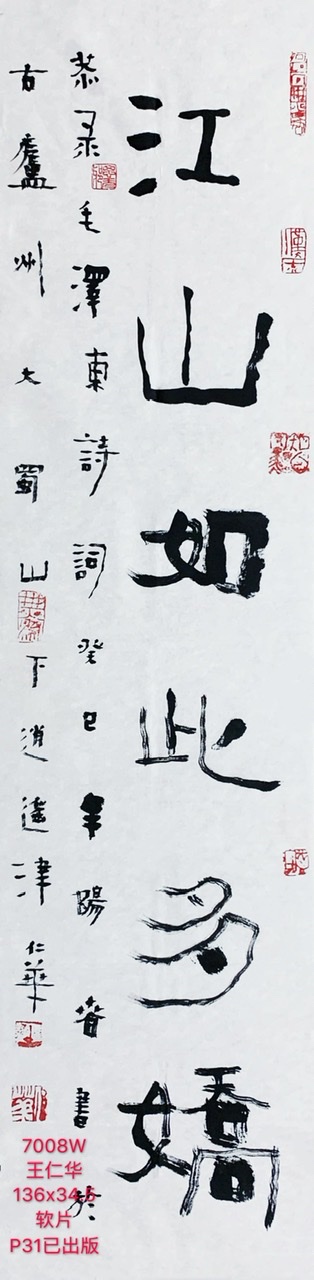 江山如此多嬌
恭录毛澤東詩詞癸巳年陽春書於
古廬州大蜀山下逍遥津仁華
7008W
王仁华
136x34.5
软片
P31已出版